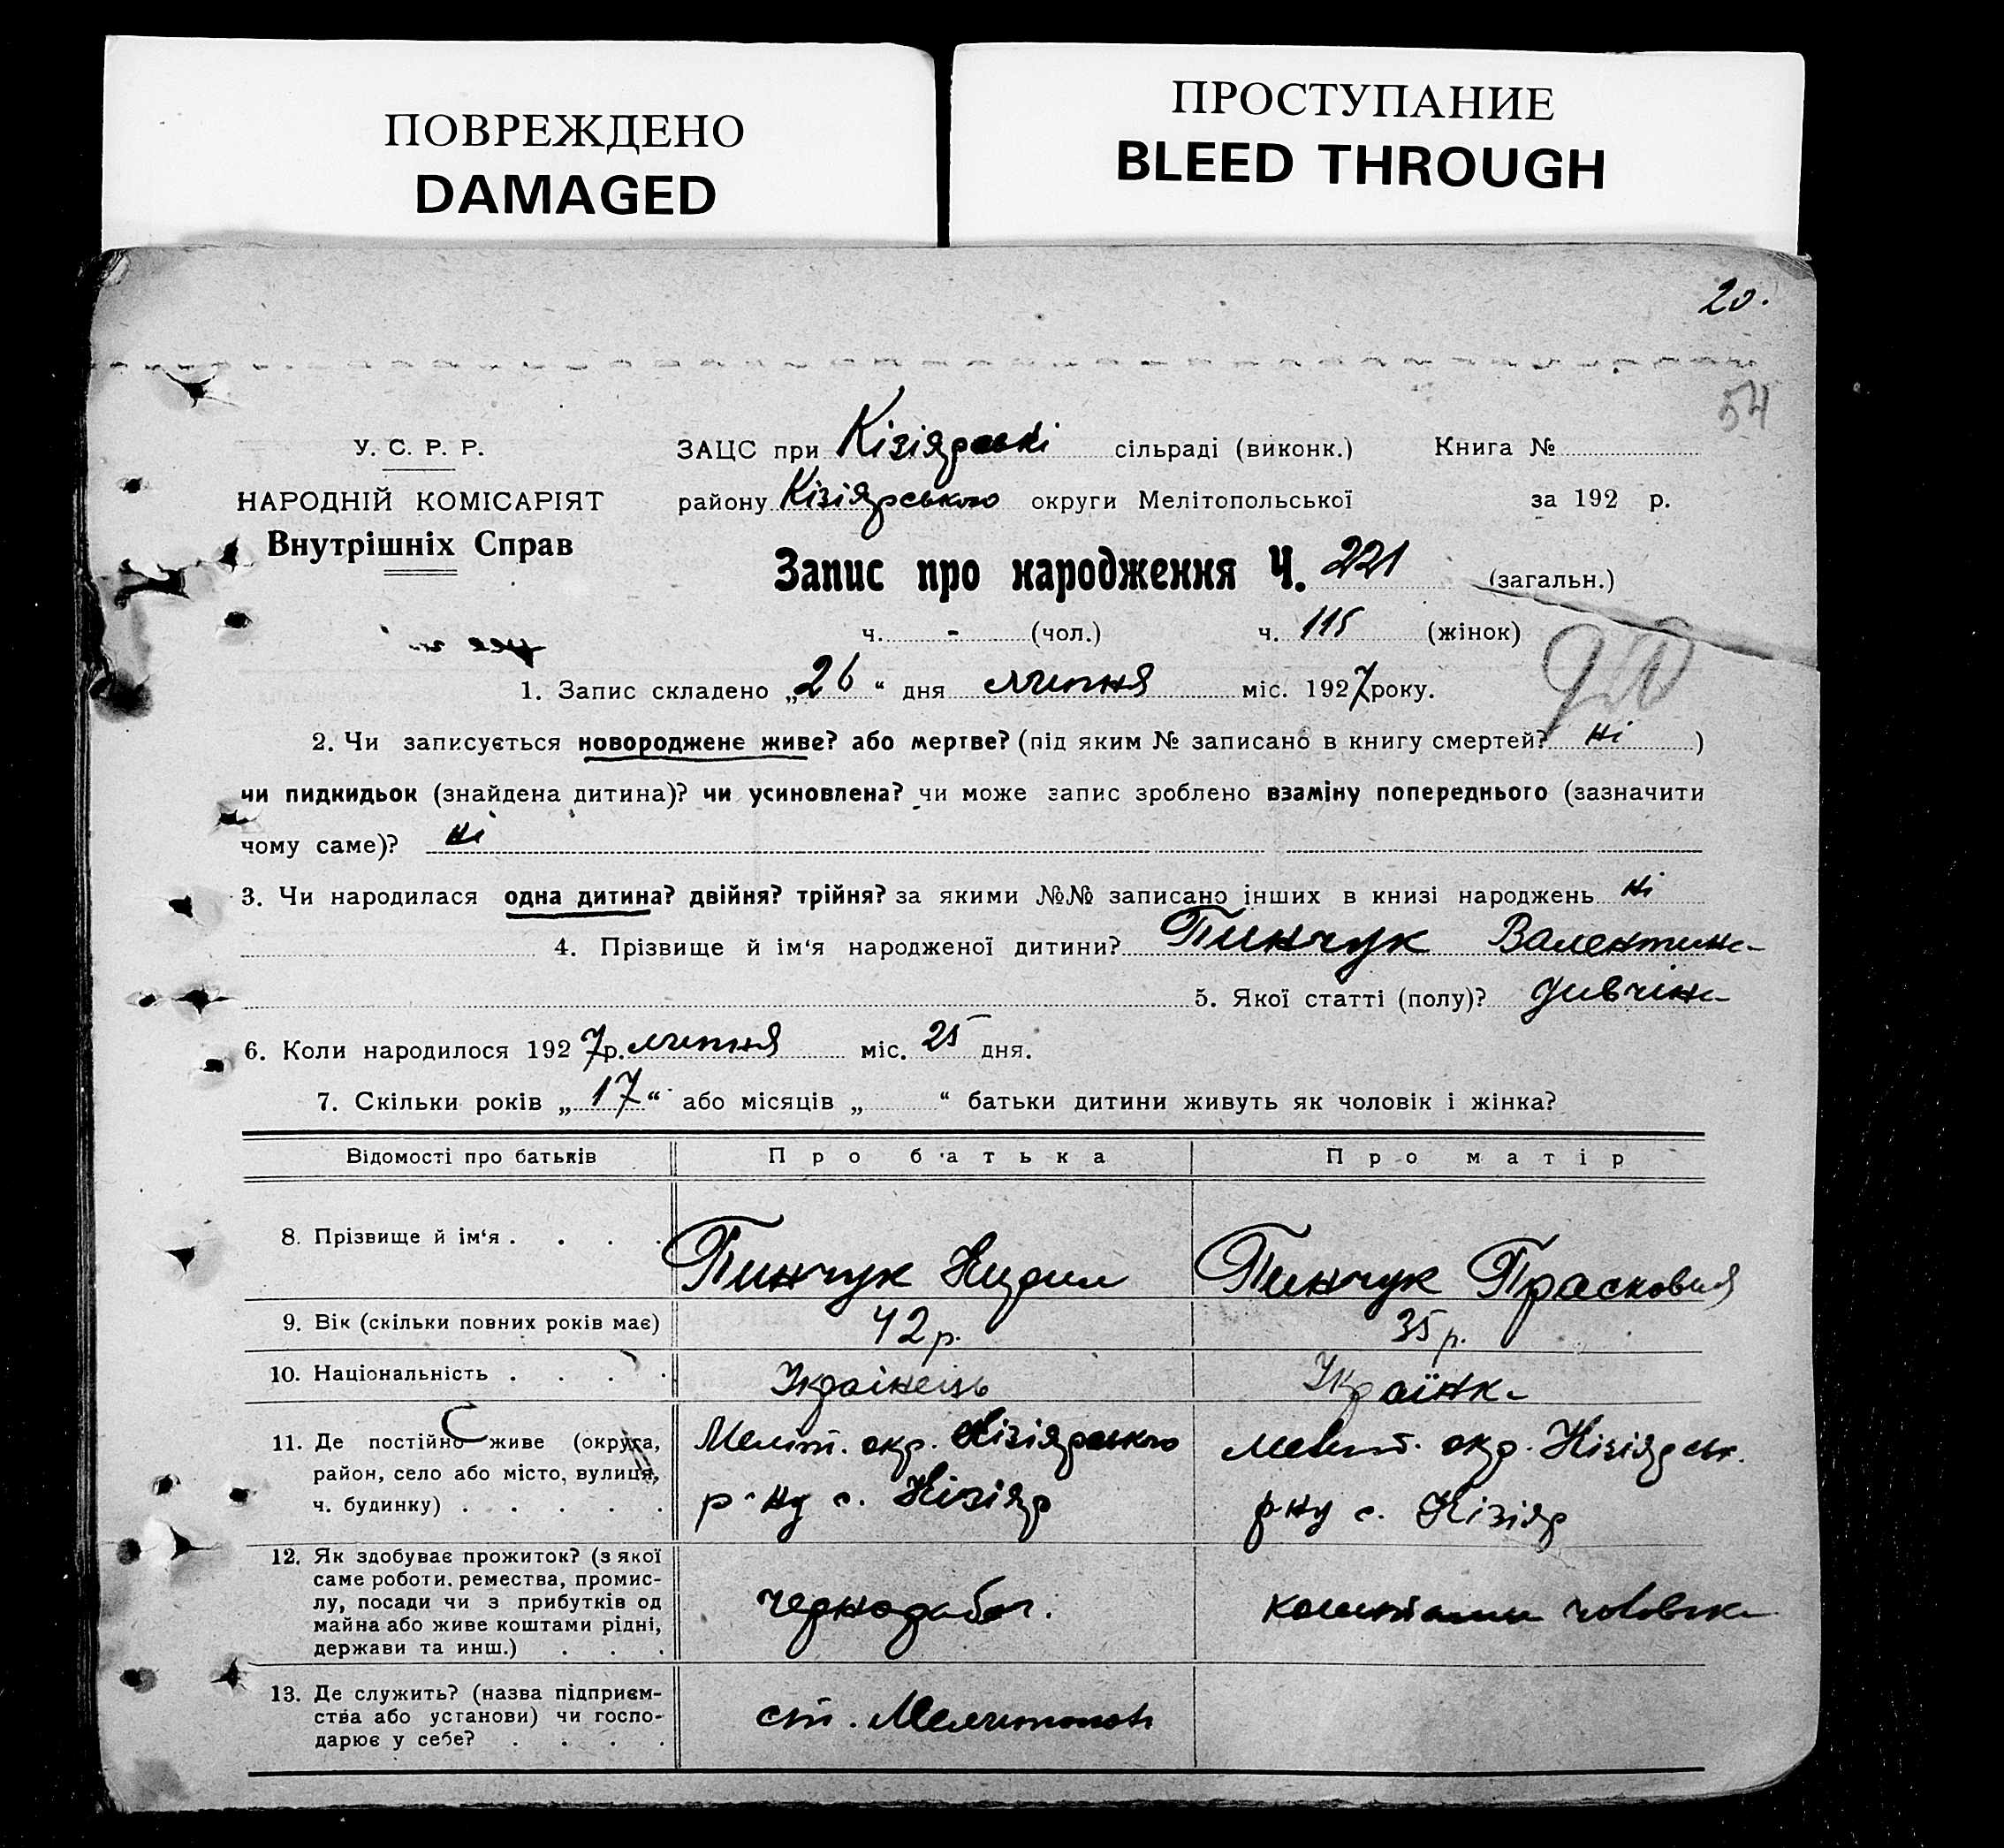 ПОВРЕЖДЕНО
DAMAGED
ПРОСТУПАНИЕ
BLEED THROUGH
20.
54
У. С. Р. Р.
НАРОДНІЙ КОМІСАРІЯТ
Внутрішніх Справ
ЗАЦС при Кізіярські сільраді (виконк.) Книга №
району Кізіярського округи Мелітопольської за 192 р.
Запис про народження Ч. 221 (загальн.)
ч. - (чол.) ч. 115 (жінок)
1. Запис складено „26“ дня липня міс. 1927 року.
2. Чи записується новороджене живе? або мертве? (під яким № записано в книгу смертей? ні )
чи пидкидьок (знайдена дитина)? чи усиновлена? чи може запис зроблено взаміну попереднього (зазначити
чому саме)? ні
3. Чи народилася одна дитина? двійня? трійня? за якими №№ записано інших в книзі народжень ні
4. Прізвище й ім‘я народженої дитини? Пинчук Валентина
5. Якої статті (полу)? дивчіна
6. Коли народилося 1927р. липня міс. 25 дня.
7. Скільки років „17“ або місяців „ “ батьки дитини живуть як чоловік і жінка?
Відомості про батьків Про батька Про матір
8. Прізвище й ім‘я . . . . Пинчук Кирил Пинчук Прасковия
9. Вік (скільки повних років має) 42 р. 35 р.
10. Національність . . . . Українець Українка
11. Де постійно живе (округа,
район, село або місто, вулиця,
ч. будинку) . . . . .
Мелит. окр. Кізіярського
р-ну с. Кізіяр
Мелит. окр. Кізіярськ.
р-ну с. Кізіяр
12. Як здобуває прожиток? (з якої
саме роботи, ремества, промис-
лу, посади чи з прибутків од
майна або живе коштами рідні,
держави та инш.) . . .
чернораброч.
коштами чоловіка
13. Де служить? (назва підприєм-
ства або установи) чи госпо-
дарює у себе? . . . .
ст. Мелитополь